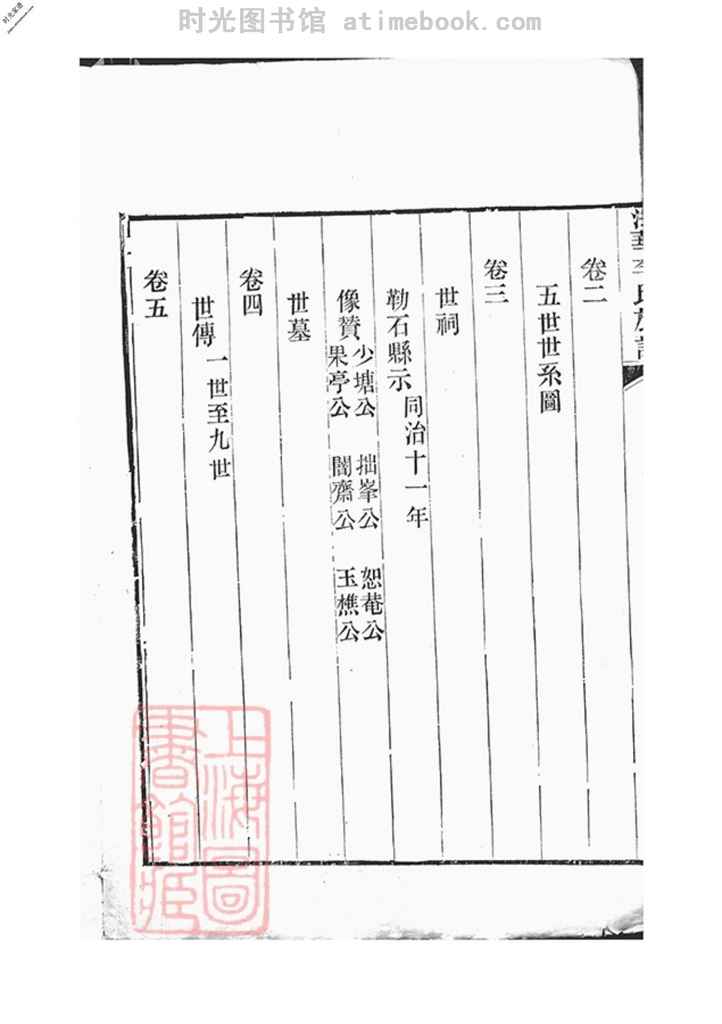 时光图书馆 atimebook.com
卷二
五世世系圖
卷三
世祠
勒石縣示 同治十一年
像贊 少塘公 拙峯公 恕菴公
果亭公 闇齋公 玉樵公
世墓
卷四
世傳 一世至九世
卷五
上海圖
書館藏